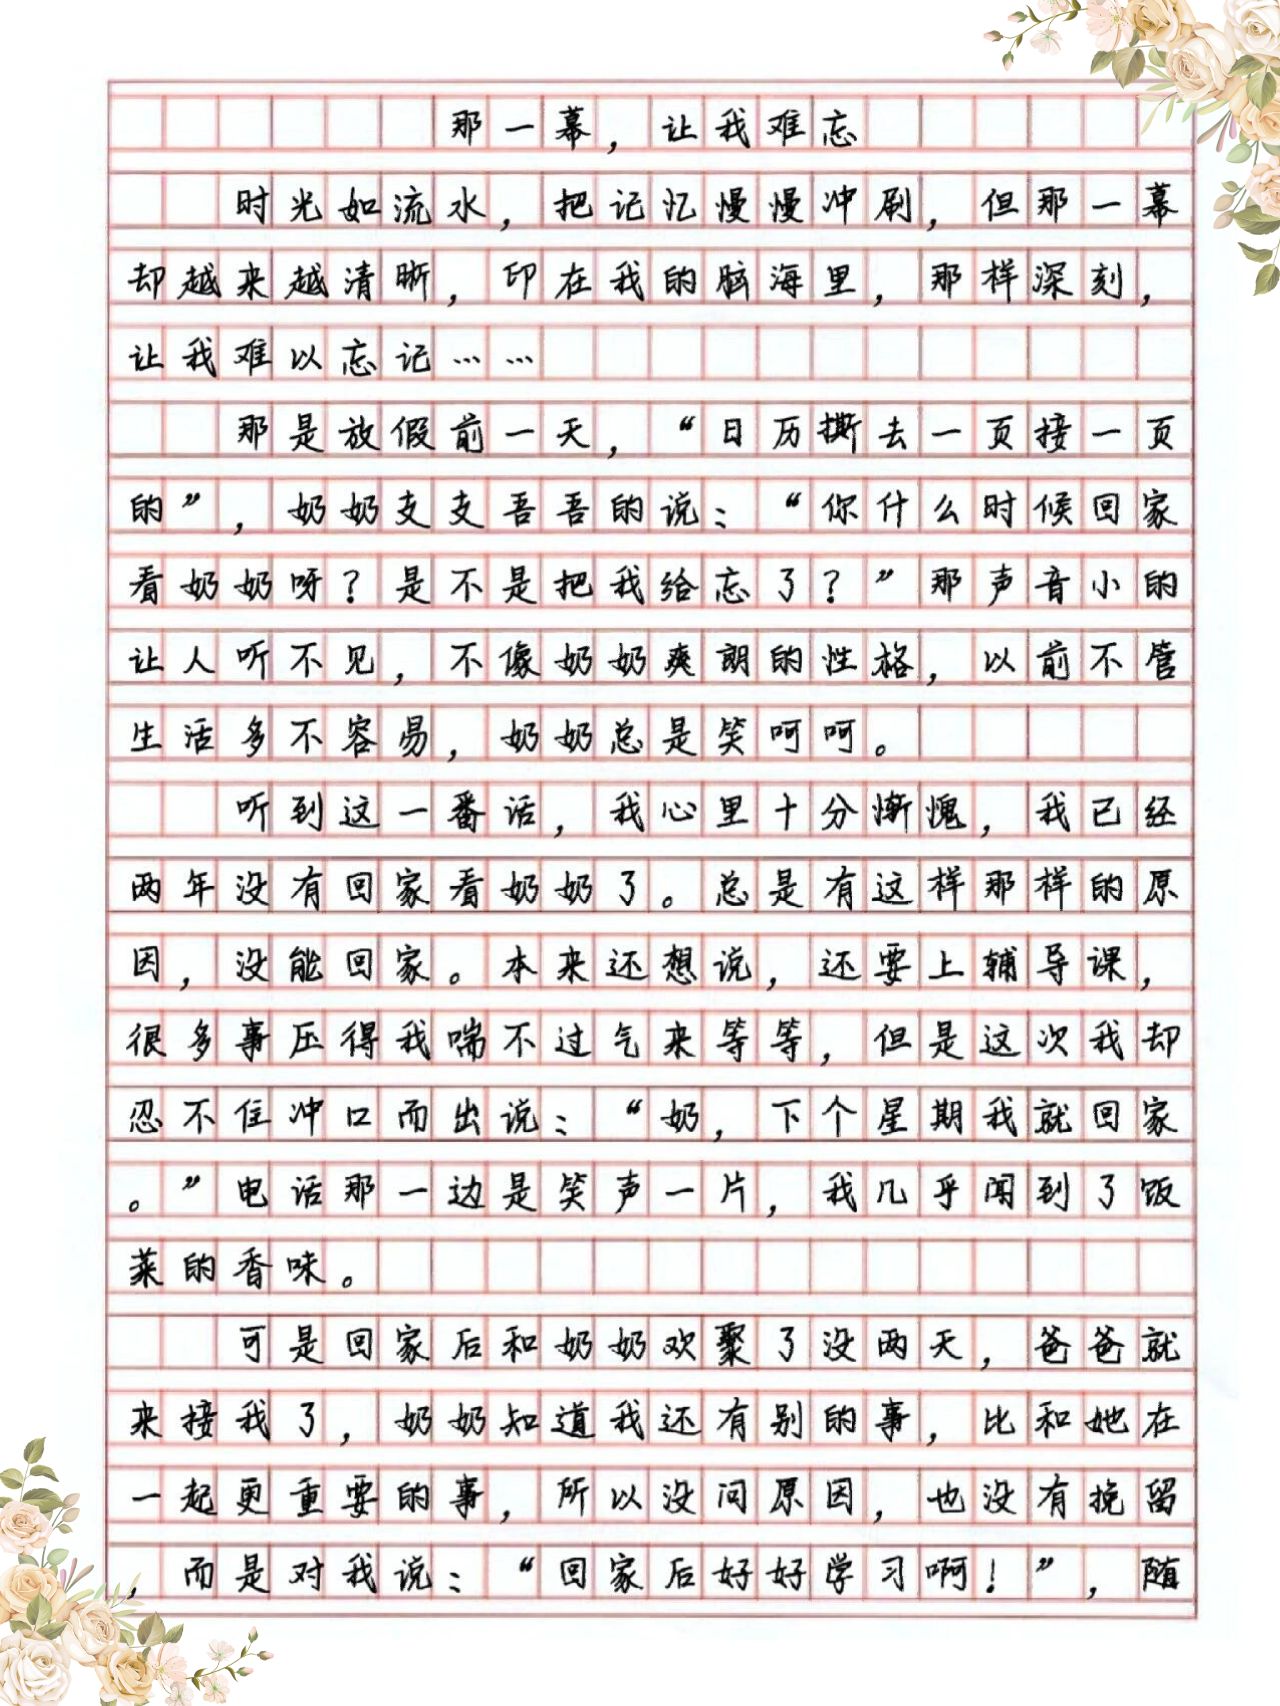 那一幕，让我难忘
时光如流水，把记忆慢慢冲刷，但那一幕
却越来越清晰，印在我的脑海里，那样深刻，
让我难以忘记……
那是放假前一天，“日历撕去一页接一页
的”，奶奶支支吾吾的说：“你什么时候回家
看奶奶呀？是不是把我给忘了？”那声音小的
让人听不见，不像奶奶爽朗的性格，以前不管
生活多不容易，奶奶总是笑呵呵。
听到这一番话，我心里十分惭愧，我已经
两年没有回家看奶奶了。总是有这样那样的原
因，没能回家。本来还想说，还要上辅导课，
很多事压得我喘不过气来等等，但是这次我却
忍不住冲口而出说：“奶，下个星期我就回家
。”电话那一边是笑声一片，我几乎闻到了饭
菜的香味。
可是回家后和奶奶欢聚了没两天，爸爸就
来接我了，奶奶知道我还有别的事，比和她在
一起更重要的事，所以没问原因，也没有挽留
，而是对我说：“回家后好好学习啊！”，随